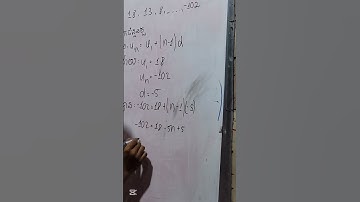 18, 13, 8, ......, -102
uₙ = u₁ + (n-1)d
u₁ = 18
uₙ = -102
d = -5
-102 = 18 + (n-1)(-5)
-102 = 18 - 5n + 5